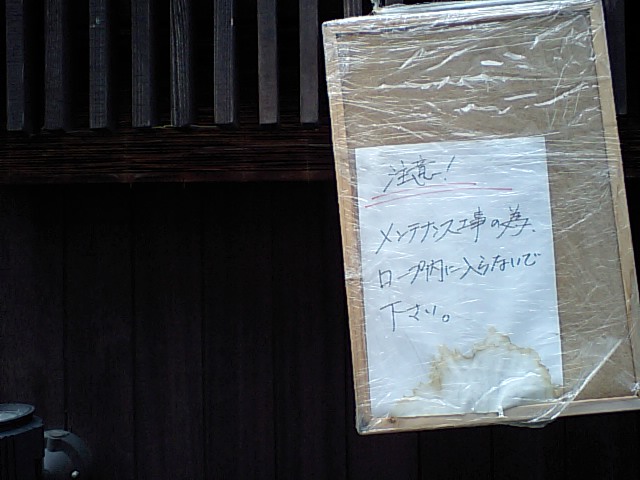 注意!
メンテナンス工事の為、
ロープ内に入らないで
下さい。